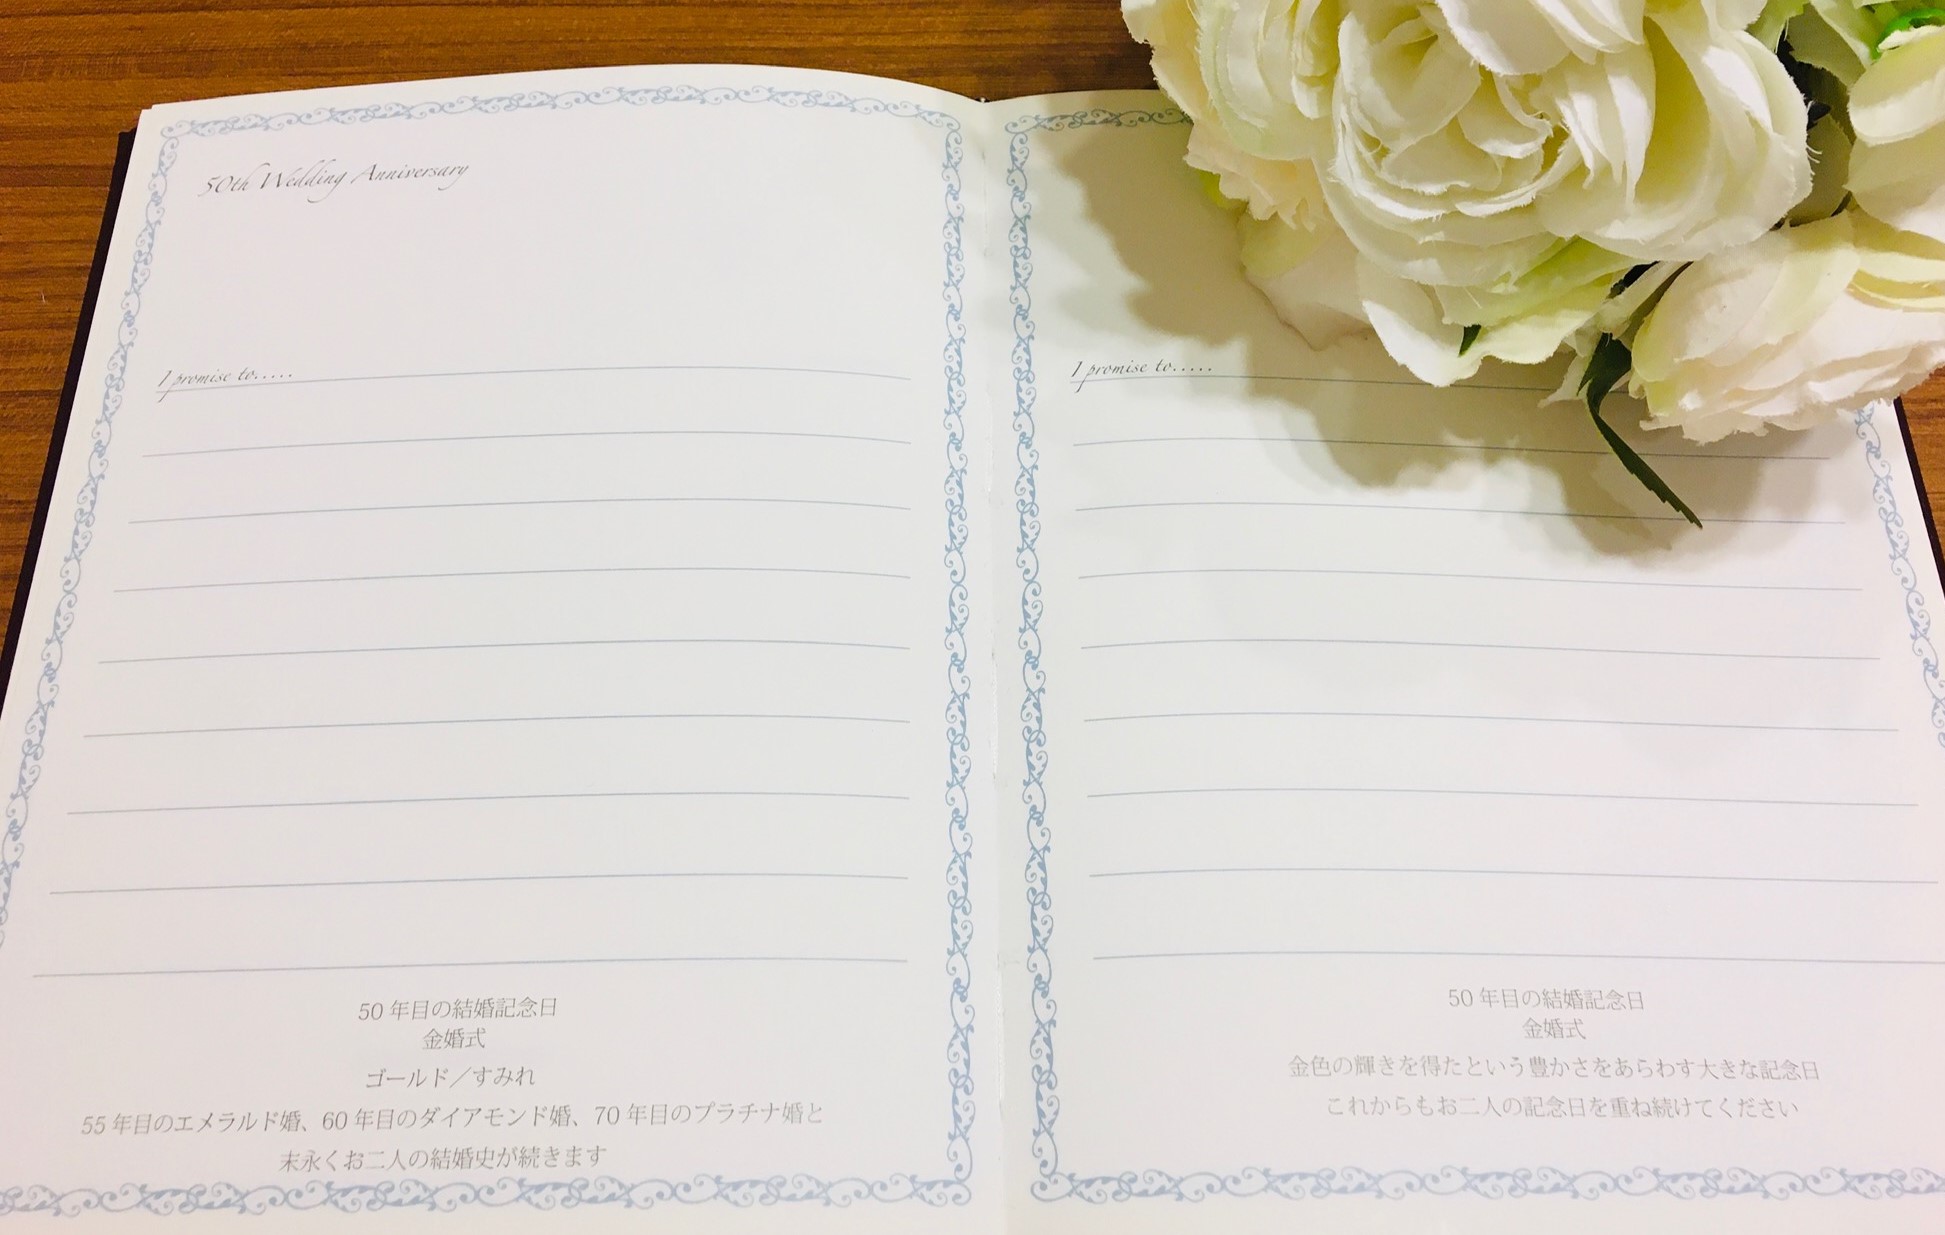 50th Wedding Anniversary
I promise to.....
50年目の結婚記念日
金婚式
ゴールド／すみれ
55年目のエメラルド婚、60年目のダイアモンド婚、70年目のプラチナ婚と
末永くお二人の結婚史が続きます
I promise to.....
50年目の結婚記念日
金婚式
金色の輝きを得たという豊かさをあらわす大きな記念日
これからもお二人の記念日を重ね続けてください